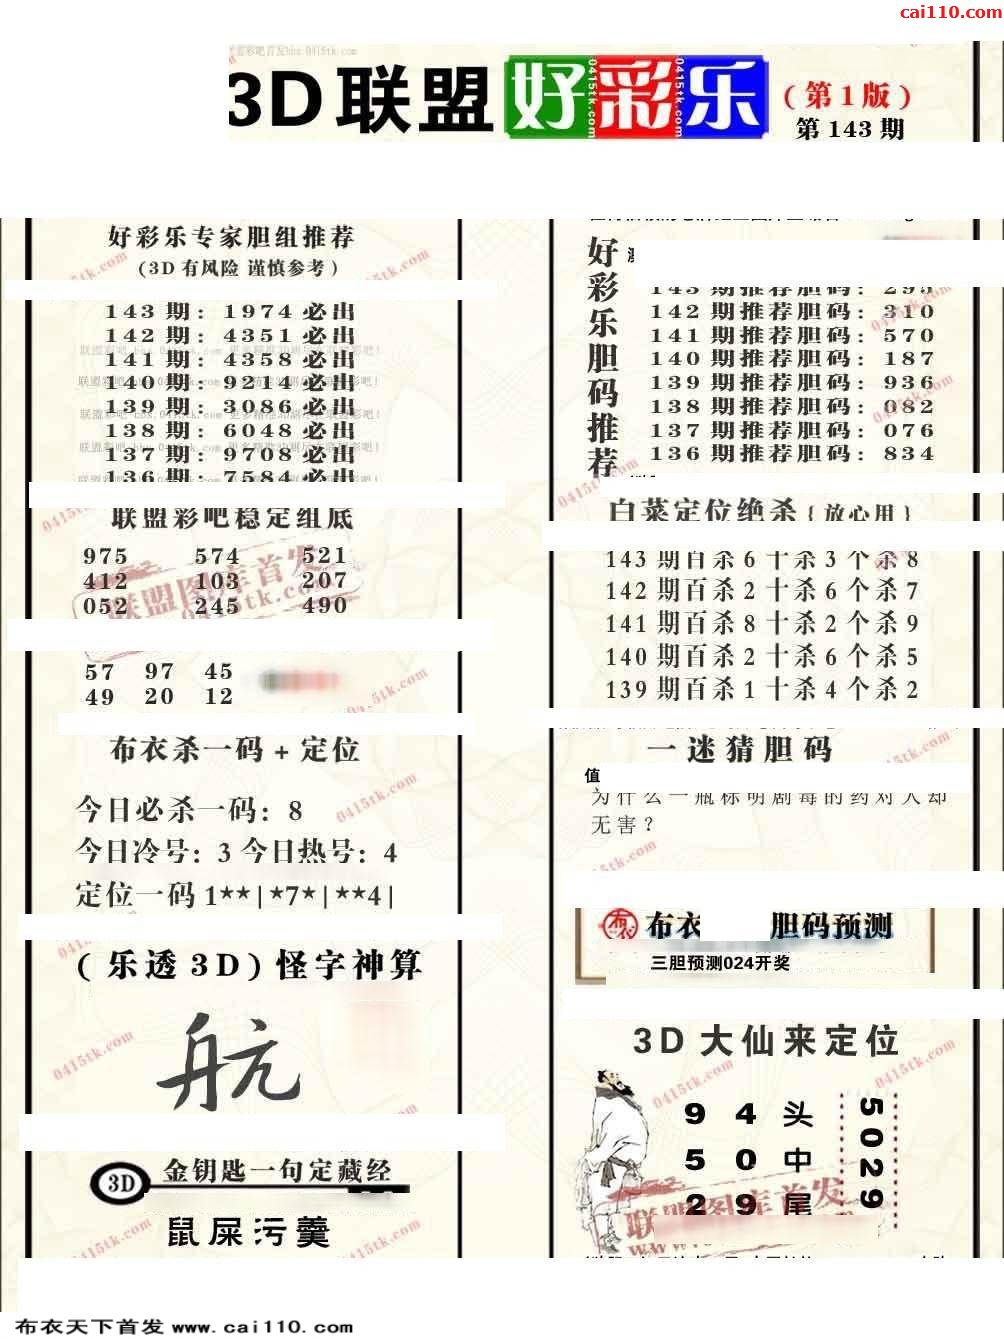 cai110.com
3D联盟好彩乐
(第1版)
第143期
好彩乐专家胆组推荐
(3D有风险 谨慎参考)
143期: 1974必出
142期: 4351必出
141期: 4358必出
140期: 9214必出
139期: 3086必出
138期: 6048必出
137期: 9708必出
136期: 7584必出
联盟彩吧稳定组底
975 574 521
412 103 207
052 245 490
57 97 45
49 20 12
布衣杀一码+定位
今日必杀一码: 8
今日冷号: 3 今日热号: 4
定位一码 1**|*7*|**4|
(乐透3D)怪字神算
航
3D 金钥匙一句定藏经
鼠屎污羹
好彩乐胆码推荐
143期推荐胆码: 295
142期推荐胆码: 310
141期推荐胆码: 570
140期推荐胆码: 187
139期推荐胆码: 936
138期推荐胆码: 082
137期推荐胆码: 076
136期推荐胆码: 834
白菜定位绝杀{放心用}
143期百杀6十杀3个杀8
142期百杀2十杀6个杀7
141期百杀8十杀2个杀9
140期百杀2十杀6个杀5
139期百杀1十杀4个杀2
一迷猜胆码
值
为什么一瓶标明剧毒的药对人却
无害?
布衣 胆码预测
三胆预测024开奖
3D大仙来定位
9 4头
5 0中
2 9尾
5029
布衣天下首发 www.cai110.com